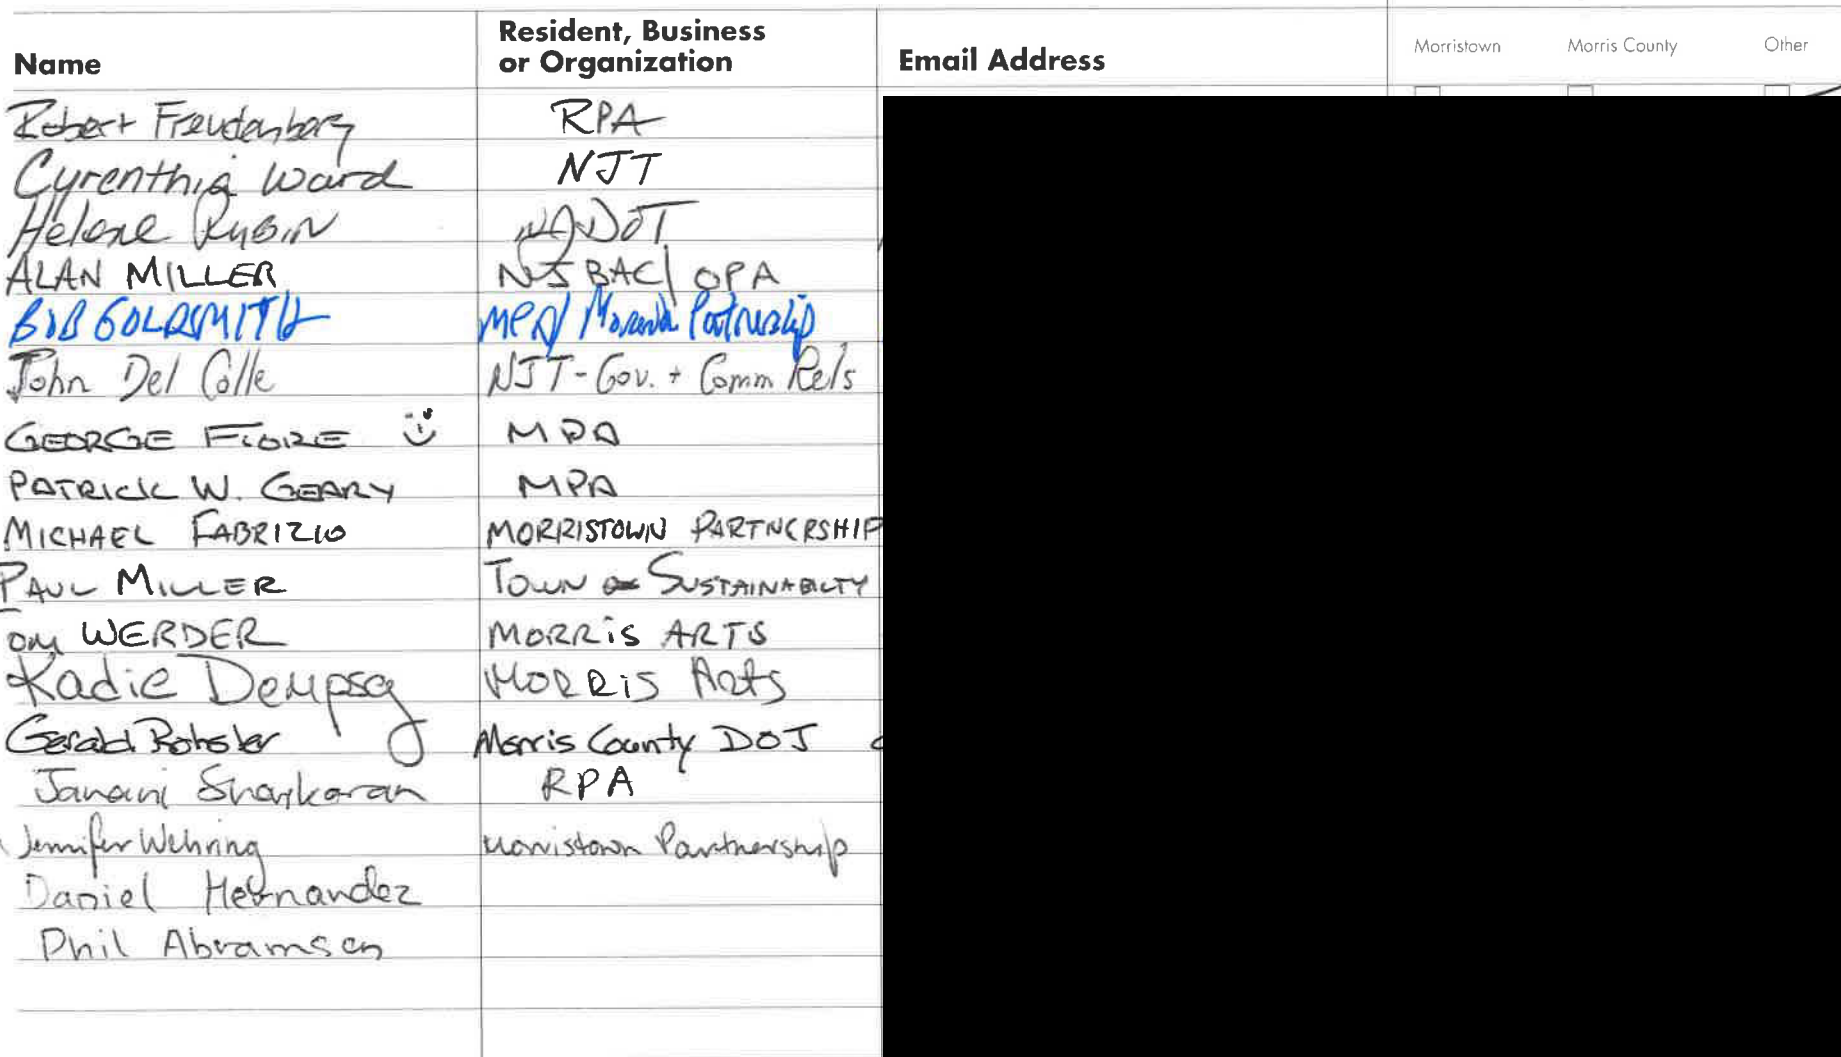 Name Resident, Business or Organization Email Address Morristown Morris County Other
Robert Freudenberg RPA
Cyrenthia Ward NJT
Helene Rubin NJDOT
ALAN MILLER NJ BAC/OPA
BOB GOLDSMITH MPA/ Partnership
John Del Colle NJT-Gov. + Comm Rels
GEORGE FIORE MPA
PATRICK W. GEARY MPA
MICHAEL FABRIZIO MORRISTOWN PARTNERSHIP
PAUL MILLER TOWN SUSTAINABILTY
Tom WERDER MORRiS ARTS
Kadie Dempsey MORRiS Arts
Gerald Rohsler Morris County DOT
Janani Shankaran RPA
Jennifer Wehring Morristown Partnership
Daniel Hernandez
Phil Abramson